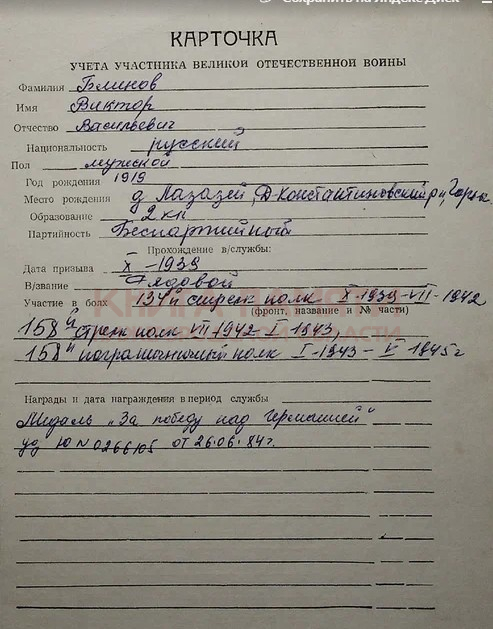 Сохранить на Яндекс Диск
КАРТОЧКА
УЧЕТА УЧАСТНИКА ВЕЛИКОЙ ОТЕЧЕСТВЕННОЙ ВОЙНЫ
Фамилия Блинов
Имя Виктор
Отчество Васильевич
Национальность русский
Пол мужской
Год рождения 1919
Место рождения д Лазазей, Д-Константиновский р-н, Горьк.
Образование 2 кл
Партийность Беспартийный
Прохождение в/службы:
Дата призыва X-1939
В/звание Рядовой
Участие в боях 134й стрелк полк X-1939-VII-1942
(фронт, название и № части)
КНИГА ПАМЯТИ
158й стрелк полк VII-1942-I-1943,
ОБЛАСТИ
158й пограничный полк I-1943-V-1945г
Награды и дата награждения в период службы
Медаль „За победу над Германией"
уд Ю № 0266105 от 26.06.84г.